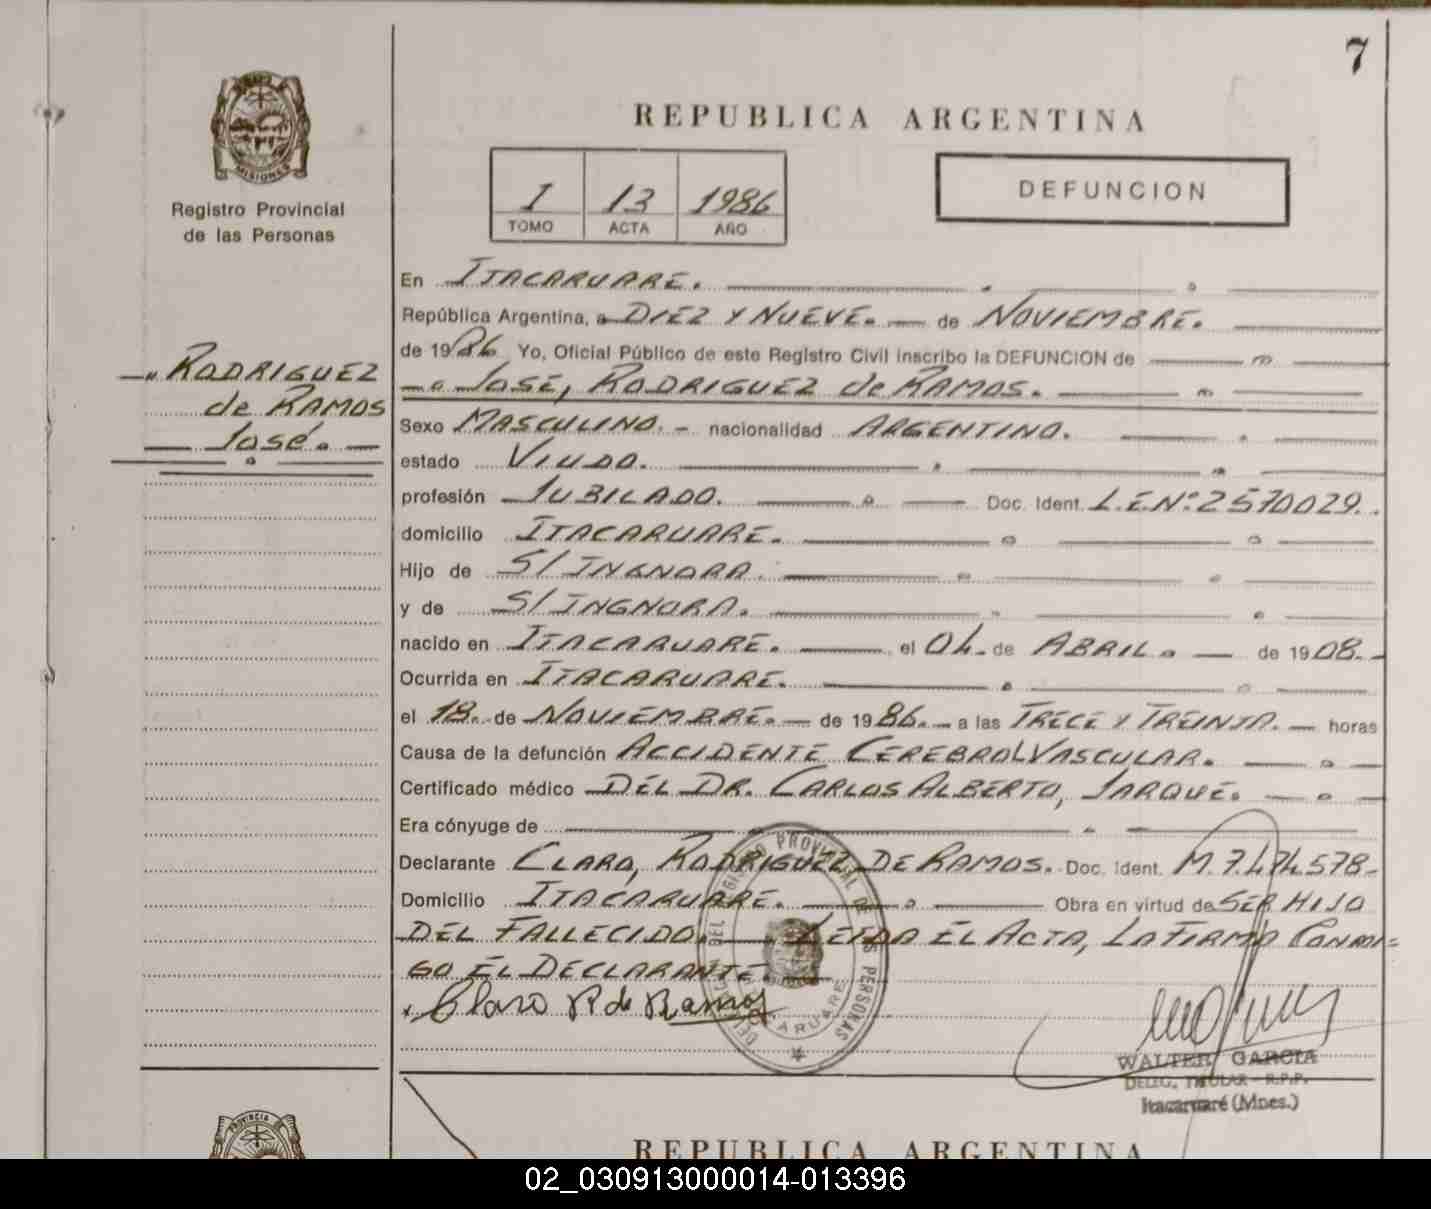 7
MISIONES
Registro Provincial
de las Personas
REPUBLICA ARGENTINA
I 13 1986
TOMO ACTA AÑO
DEFUNCION
RODRIGUEZ
de RAMOS
José.
En ITACARUARE.
República Argentina, a DIEZ Y NUEVE. de NOVIEMBRE.
de 1986 Yo, Oficial Público de este Registro Civil inscribo la DEFUNCION de
José, RODRIGUEZ de RAMOS.
Sexo MASCULINO. - nacionalidad ARGENTINO.
estado VIUDO.
profesión JUBILADO. Doc. Ident. L.E.Nº:2570029.
domicilio ITACARUARE.
Hijo de S/INGNORA.
y de S/INGNORA.
nacido en ITACARUARE. el 04. de ABRIL. de 1908.-
Ocurrida en ITACARUARE.
el 18. de NOVIEMBRE. de 1986. a las TRECE Y TREINTA. horas
Causa de la defunción ACCIDENTE CEREBROLVASCULAR.
Certificado médico DEL DR. CARLOS ALBERTO, JARQUE.
Era cónyuge de
Declarante CLARO, RODRIGUEZ DE RAMOS. Doc. Ident. M.7.474.578-
Domicilio ITACARUARE. Obra en virtud de SER HIJO
DEL FALLECIDO. LEIDA EL ACTA, LA FIRMA CONMI-
GO EL DECLARANTE.
Claro R de Ramos
REGISTRO PROVINCIAL DE LAS PERSONAS
WALTER GARCIA
DELEG. TITULAR - R.P.P.
Itacaruaré (Mnes.)
PROVINCIA DE
REPUBLICA ARGENTINA
02_030913000014-013396